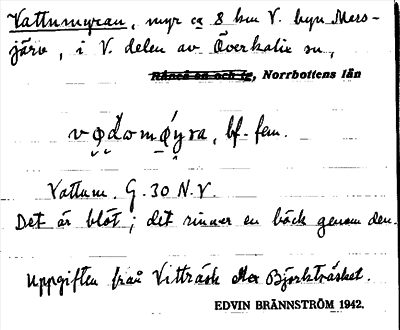 Vattumyran, myr ca 8 km V. byn Mars-
järv, i V. delen av Överkalix sn,
Råneå sn och tg, Norrbottens län
vo̯d̯ɷmǿyra, bf. fem.
Vattum. G. 30 N.V.
Det är blöt; det rinner en bäck genom den.
Uppgiften från Vitträsk Björkträsket.
EDVIN BRÄNNSTRÖM 1942.